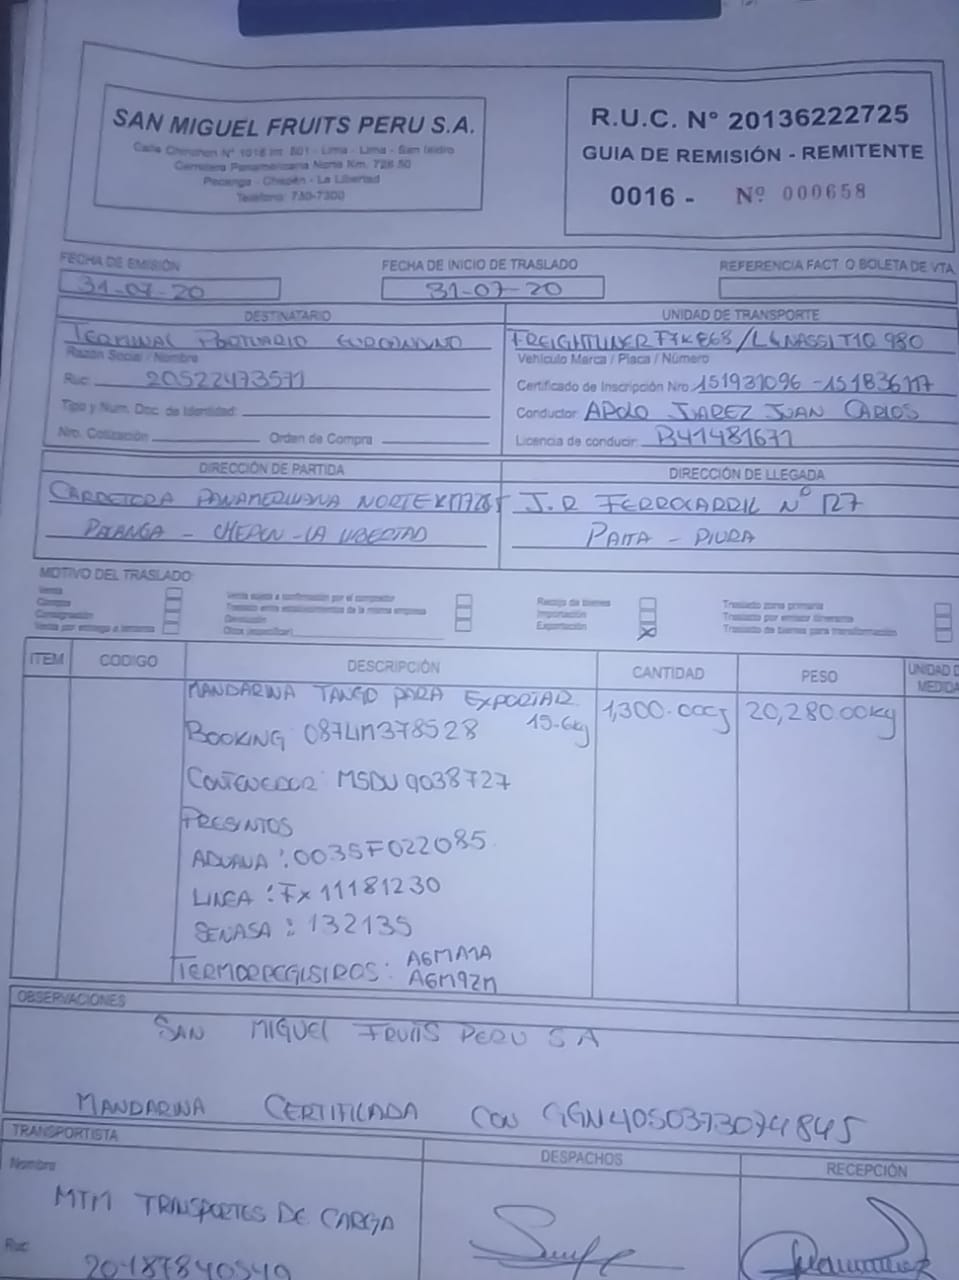 SAN MIGUEL FRUITS PERU S.A.
Calle Chinchon N° 1018 Int. 801 - Lima - Lima - San Isidro
Carretera Panamericana Norte Km.
Pacanga - Chepén - La Libertad
Teléfono: 730-7300
R.U.C. N° 20136222725
GUIA DE REMISIÓN - REMITENTE
0016 - Nº 000658
FECHA DE EMISIÓN
31-07-20
FECHA DE INICIO DE TRASLADO
31-07-20
REFERENCIA FACT. O BOLETA DE VTA.
DESTINATARIO
TERMINAL PORTUARIO EUROANDINO
Razón Social / Nombre
Ruc: 20522473571
Tipo y Num. Doc. de Identidad:
Nro. Cotización Orden de Compra
UNIDAD DE TRANSPORTE
FREIGHTLINER 980
Vehículo Marca / Placa / Número
Certificado de Inscripción Nro 151931096 -151836117
Conductor: APOLO JUAREZ JUAN CARLOS
Licencia de conducir: B41481671
DIRECCIÓN DE PARTIDA
CARRETERA PANAMERICANA NORTE
PACANGA - CHEPEN - LA LIBERTAD
DIRECCIÓN DE LLEGADA
J.R FERROCARRIL N° 127
PAITA - PIURA
MOTIVO DEL TRASLADO:
Venta
Compra
Consignación
Venta por entrega a terceros
Venta sujeta a confirmación por el comprador
Traslado entre establecimientos de la misma empresa
Devolución
Otros (especificar)
Recojo de bienes
Importación
Exportación X
Traslado zona primaria
Traslado por emisor itinerante
Traslado de bienes para transformación
ITEM CODIGO DESCRIPCIÓN CANTIDAD PESO UNIDAD D
MEDIDA
MANDARINA TANGO PARA EXPORTAR 1,300.00cj 20,280.00kg
BOOKING 087LIM378528 15.6kg
CONTENEDOR: MSDU 9038727
PRESINTOS
ADUANA: 0035F022085
LINEA: Fx 11181230
SENASA: 132135
TERMOREGISTROS: A6MA1A
A6M9ZM
OBSERVACIONES
SAN MIGUEL FRUITS PERU S A
MANDARINA CERTIFICADA CON GGN4050373074845
TRANSPORTISTA
Nombre
MTM TRANSPORTES DE CARGA
Ruc
20487840540
DESPACHOS
RECEPCIÓN